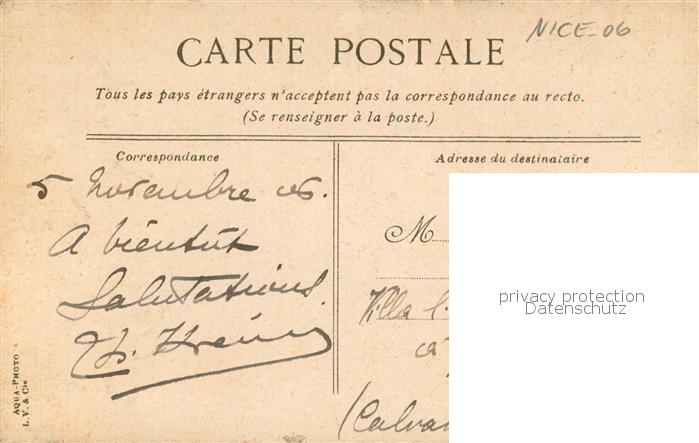 NICE-06
CARTE POSTALE
Tous les pays étrangers n'acceptent pas la correspondance au recto.
(Se renseigner à la poste.)
Correspondance
Adresse du destinataire
5 Novembre 06.
A bientôt
Salutations.
M
Villa
à
(Calva
privacy protection
Datenschutz
AQUA-PHOTO
L. V. & Cie